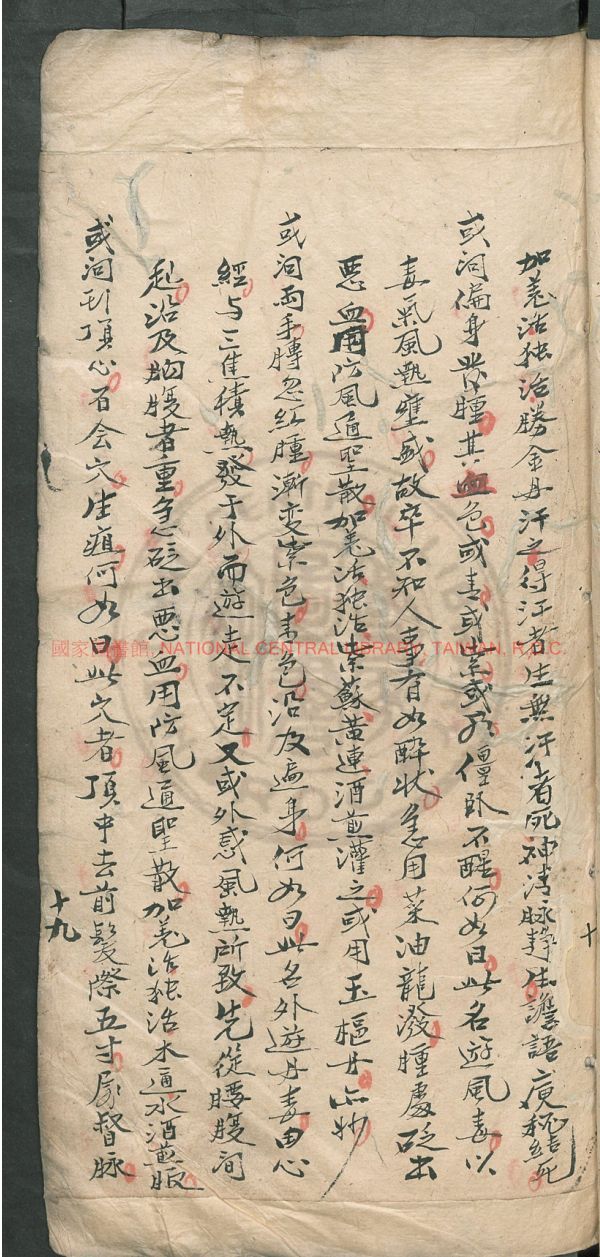 加羌活独活勝金丹汗之得汗者生無汗者死神清脉靜生譫語痰秘結死
或问偏身發腫其血色或青或紫或 僵卧不醒何如曰此名遊風毒以
毒氣風熱壅盛故卒不知人事有如醉状急用菜油龍潑腫處砭出
悪血用防風通聖散加羌活独活紫蘇黄連酒煎灌之或用玉樞丹亦妙
或问両手膊忽红腫漸变紫色青色沿及遍身何如曰此名外遊丹毒由心
經与三焦積熱發于外而遊走不定又或外感風熱所致先從腰腹间
起沿及胸腹者重急砭出悪血用防風通聖散加羌活独活木通水酒煎服
或问 頂心百会穴生疽何如曰此穴者頂中去前髮際五寸属督脉
十九
十
國家圖書館, NATIONAL CENTRAL LIBRARY, TAIWAN, R.O.C.